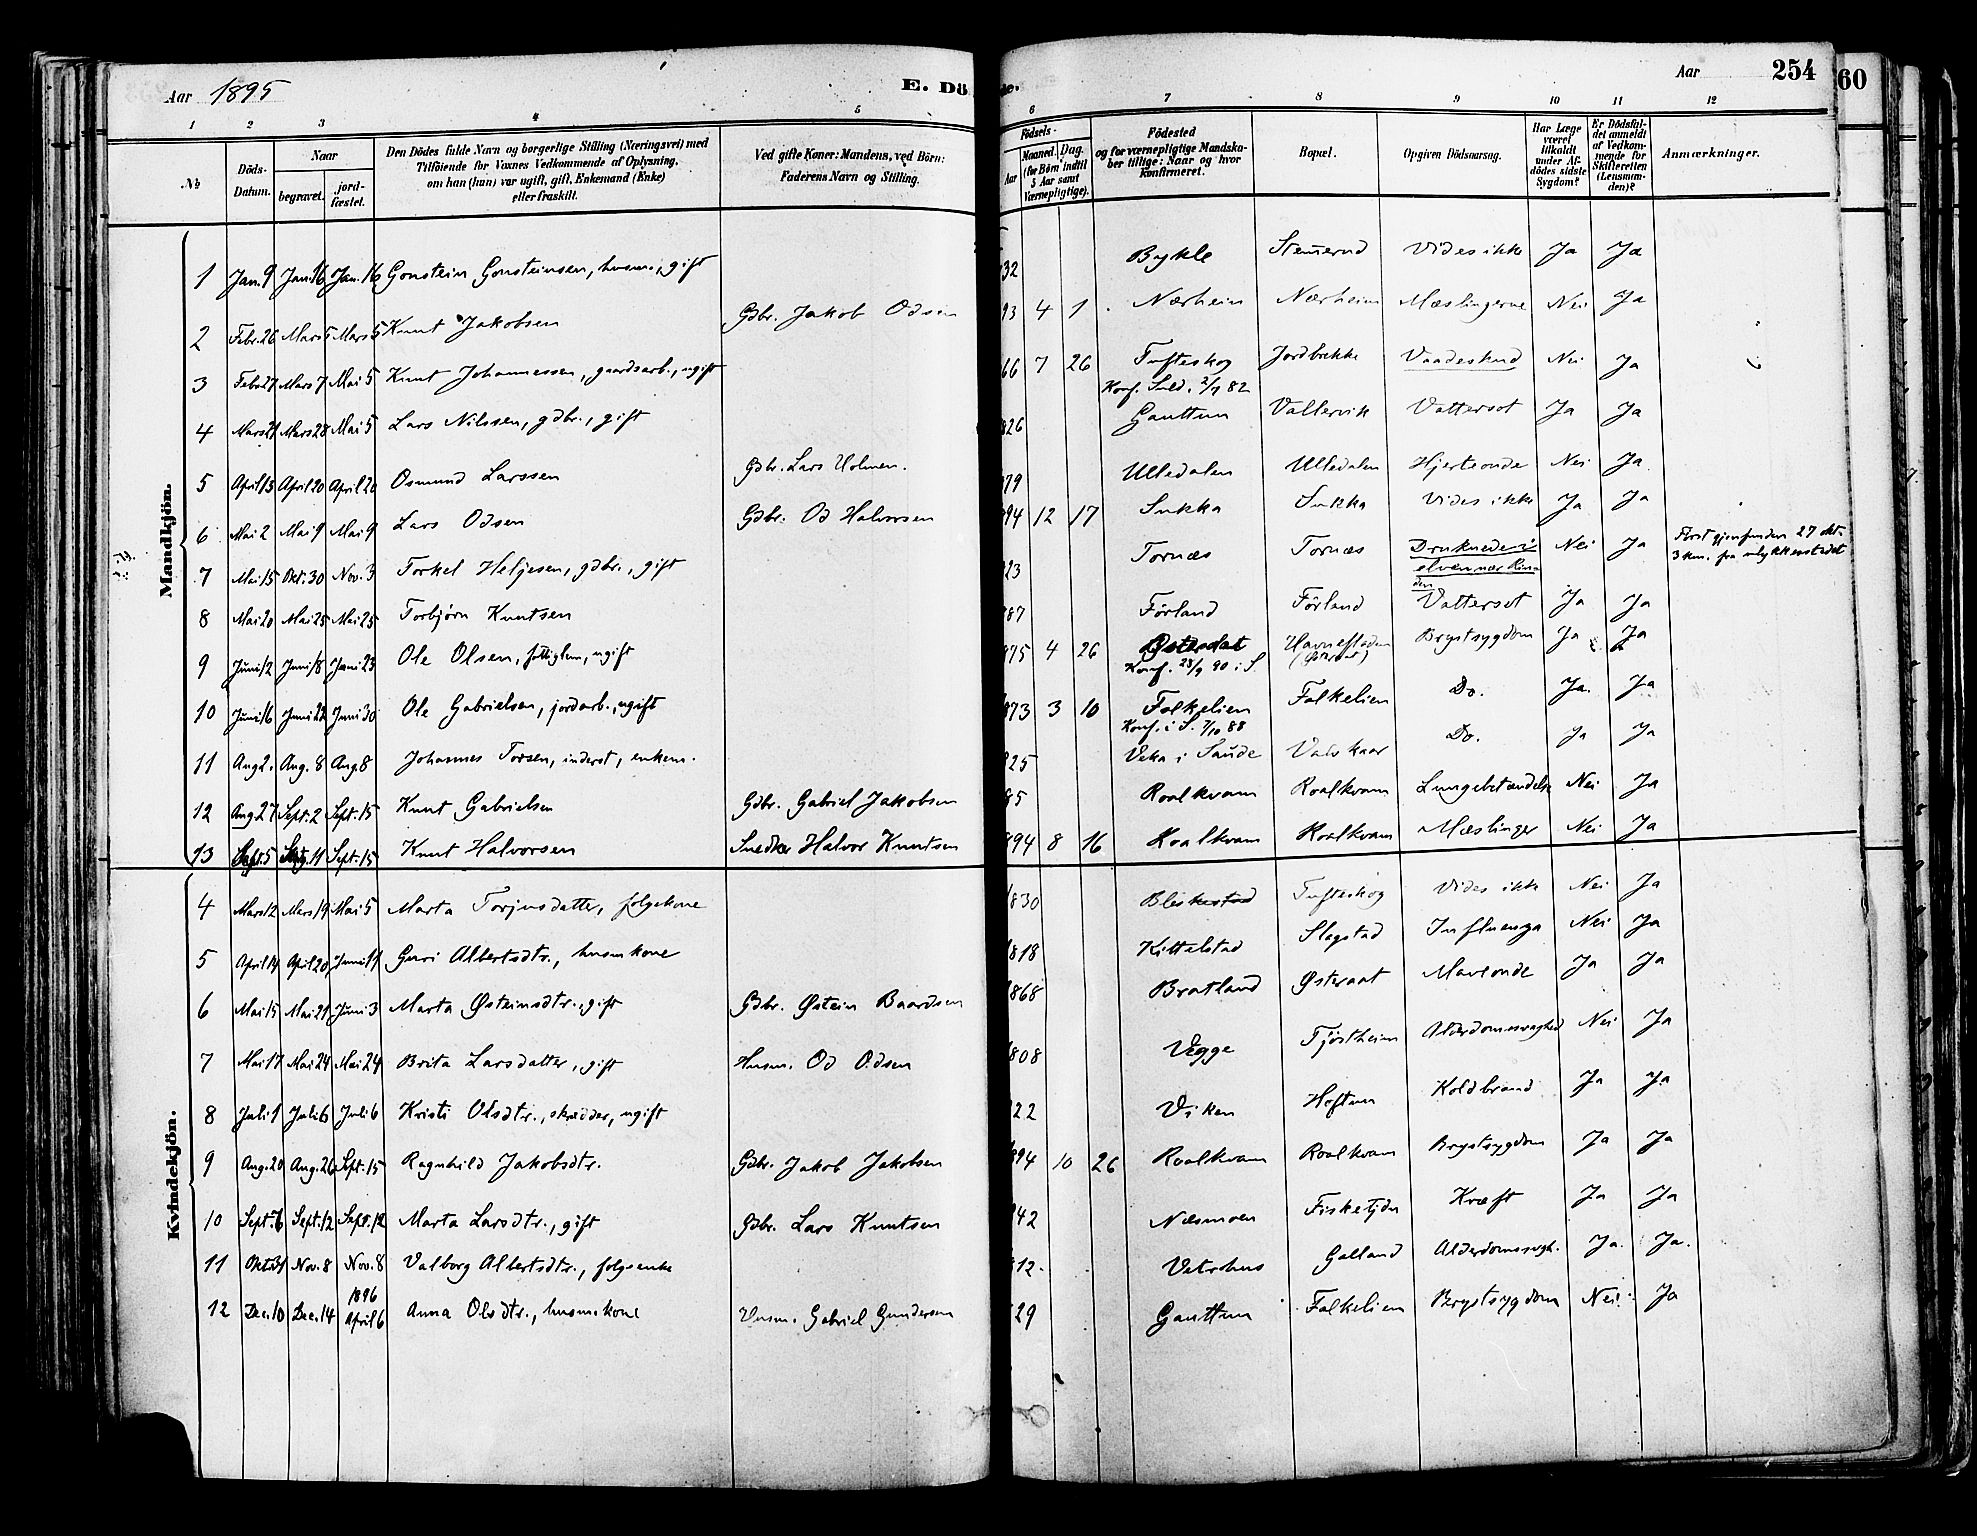 Aar 1895 E. Dö de. Aar 254 60
1 2 3 4 5 6 7 8 9 10 11 12
No
Döds-Datum.
Naar
begravet.
jord-fæstet.
Den Dödes fulde Navn og borgerlige Stilling (Næringsvei) med
Tilföiende for Voxnes Vedkommende af Oplysning,
om han (hun) var ugift, gift, Enkemand (Enke)
eller fraskilt.
Ved gifte Koner: Mandens, ved Börn:
Faderens Navn og Stilling.
Födsels-
Aar
Maaned. Dag.
(for Børn indtil
5 Aar samt
Værnepligtige).
Födested
og for værnepligtige Mandska-
ber tillige: Naar og hvor
Konfirmeret.
Bopæl.
Opgiven Dödsaarsag.
Har Læge
været
tilkaldt
under Af-
dødes sidste
Sygdom?
Er Dödsfal-
det anmeldt
af Vedkom-
mende for
Skifteretten
(Lensman-
den)?
Anmærkninger.
Mandkjön.
1 Jan. 9 Jan. 16 Jan. 16 Gonstein Gonsteinsen, husm., gift 32 Bykle Vides ikke Ja Ja
2 Febr. 26 Mars 5 Mars 5 Knut Jakobsen Gdbr. Jakob Odsen 93 4 1 Nærheim Nærheim Mæslingerne Nei Ja
3 Febr. 27 Mars 7 Mai 5 Knut Johannessen, gaardsarb., ugift 66 7 26 Tufteskog Jordbrekke Vaadeskud Nei Ja
Konf. Suld. 2/7 82
4 Mars 21 Mars 28 Mai 5 Lars Nilssen, gdbr., gift 826 Gauttun Vallervik Vattersot Ja Ja
5 April 13 April 20 April 20 Osmund Larssen Gdbr. Lars Holmen. 79 Ulledalen Ulledalen Hjerteonde Nei Ja
6 Mai 2 Mai 9 Mai 9 Lars Odsen Gdbr. Od Halvorsen 94 12 17 Sukka Sukka Vides ikke Ja Ja
7 Mai 15 Okt. 30 Nov. 3 Torkel Heljesen, gdbr., gift 23 Tornæs Tornæs Druknede i Nei Ja Först gjenfunden 27 okt.
elven nær Rin-
den
3 km. fra ulykkesstedet
8 Mai 20 Mai 25 Mai 25 Torbjørn Knutsen 87 Förland Förland Vattersot Ja Ja
9 Juni 12 Juni 18 Juni 23 Ole Olsen, fattiglem, ugift 75 4 26 Havnestøden Brystsygdom Ja Ja
Konf. 28/9 90 i S
10 Juni 16 Juni 22 Juni 30 Ole Gabrielsen, jordarb., ugift 873 3 10 Falkelien Falkelien Do. Ja. Ja
Konf. i S. 7/10 88
11 Aug 2. Aug. 8 Aug. 8 Johannes Torsen, inderst, enkem. 825 Veka i Saude Do. Ja Ja
12 Aug 27 Sept. 2 Sept. 15 Knut Gabrielsen Gdbr. Gabriel Jakobsen 85 Roalkvam Roalkvam Lungebetændelse Nei Ja
13 Sept. 5 Sept. 11 Sept. 15 Knut Halvorsen Snedker Halvor Knutsen 894 8 16 Roalkvam Roalkvam Mæslinger Nei Ja
Kvindekjön.
4 Mars 12 Mars 19 Mai 5 Marta Torjusdatter, folgekone 1830 Bleskestad Tufteskog Vides ikke Nei Ja
5 April 14 April 20 Juni 11 Guri Albertsdtr., husmkone 1818 Kittelstad Slagstad Influenza Nei Ja
6 Mai 15 Mai 21 Juni 3 Marta Østeinsdtr., gift Gdbr. Østein Baardsen 868 Bratland Østeraat Maveonde Ja Ja
7 Mai 17 Mai 24 Mai 24 Brita Larsdatter, gift Husm. Od Odsen 1808 Vegge Tjöstheim Alderdomssvaghed Nei Ja
8 Juli 1 Juli 6 Juli 6 Kristi Olsdtr., skrædder, ugift 22 Viken Hoftun Koldbrand Ja Ja
9 Aug. 20 Aug. 26 Sept. 15 Ragnhild Jakobsdtr. Gdbr. Jakob Jakobsen 894 10 26 Roalkvam Roalkvam Brystsygdom Ja Ja
10 Sept. 6 Sept. 12 Sept. 12 Marta Larsdtr., gift Gdbr. Lars Knutsen 42 Næsmoen Fisketjön Kræft Ja Ja
11 Okt. 31 Nov. 8 Nov. 8 Valborg Albertsdtr., folgeenke 12. Vetrhus Galland Alderdomssvgh. Ja. Ja.
12 Dec. 10 Dec. 14 1896 April 6 Anna Olsdtr., husmkone Husm. Gabriel Gundersen 29 Gauttun Falkelien Brystsygdom Nei Ja